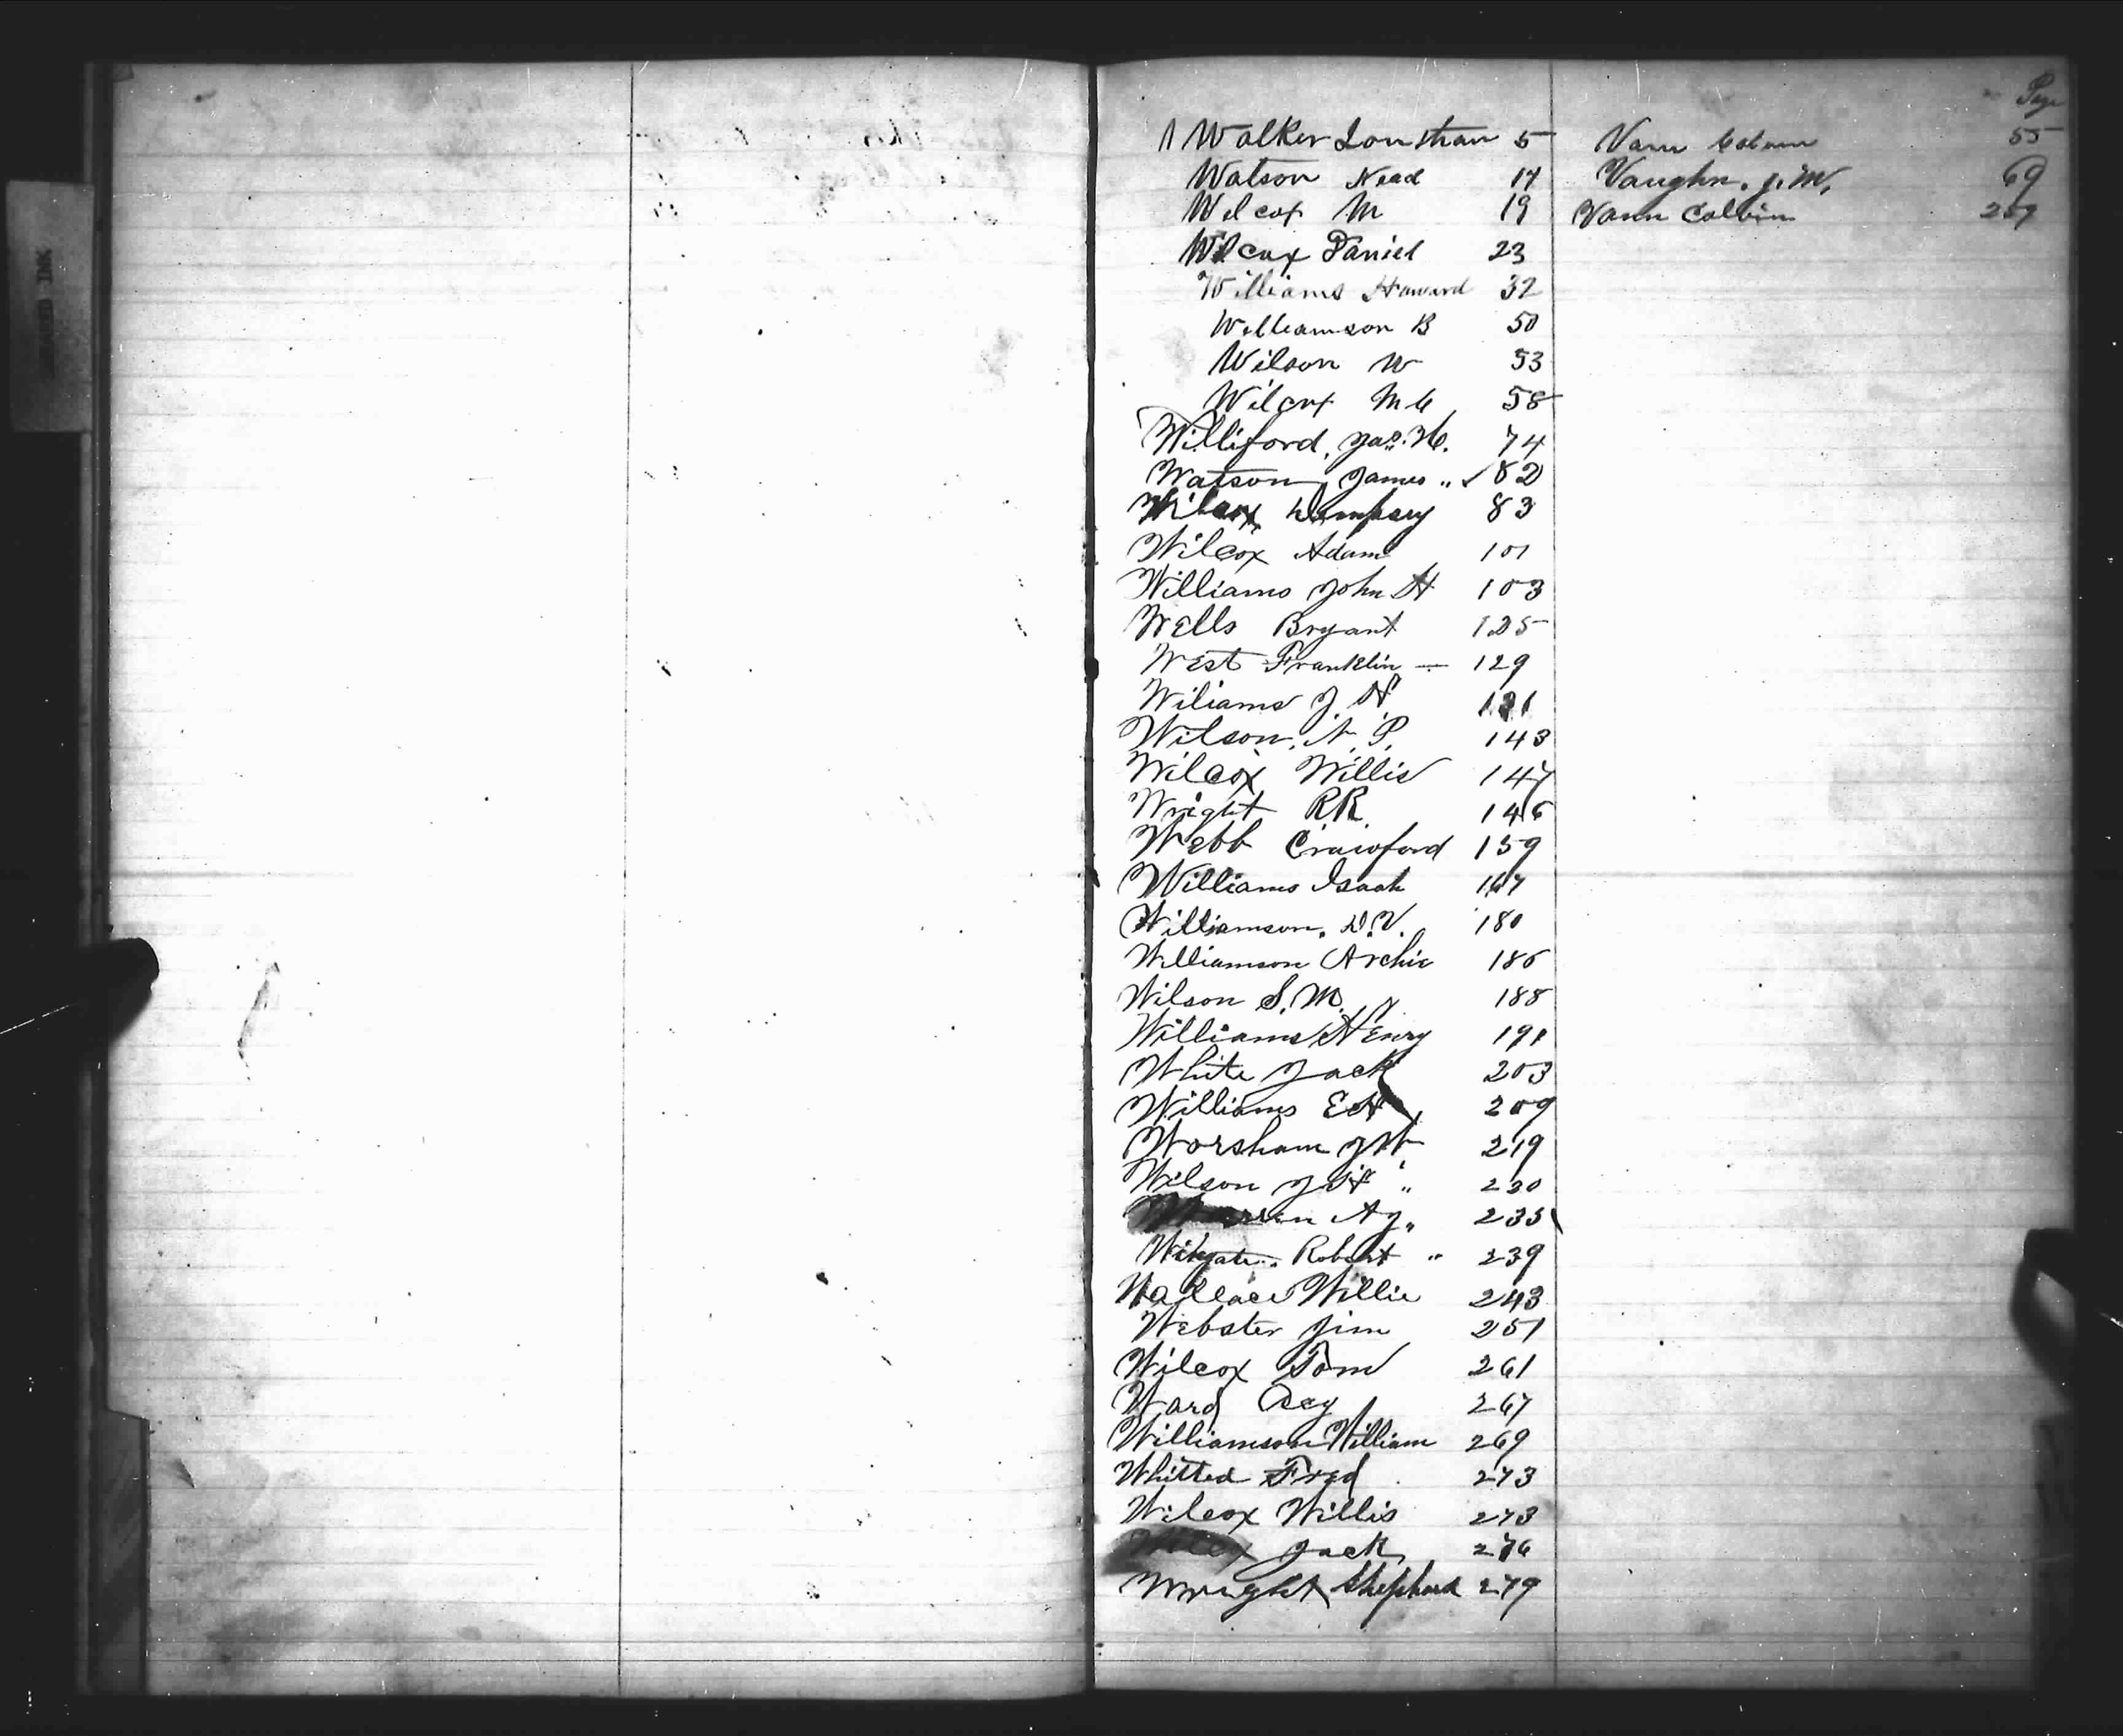 Walker Jonathan 5
Watson Nead 14
Wilcox M 19
Wilcox Daniel 23
Williams Howard 32
Williamson B 50
Wilson W 53
Wilcox M C 58
Williford, Jas. H. 74
Watson, James " 82
Wilcox Dempsey 83
Wilcox Adam 101
Williams John H 103
Wells Bryant 125
West Franklin — 129
Wiliams J H 131
Wilson, N. P. 143
Wilcox Willis 147
Wright RR. 146
Webb Crawford 159
Williams Isaah 167
Williamson, D. V. 180
Williamson Archie 186
Wilson S. M. 188
Williams Henry 191
White Jack 203
Williams E H 209
Worsham J W 219
Wilson J H " 230
235
Wingate. Robert " 239
Wallace Willie 243
Webster Jim 251
Wilcox Tom 261
Ward 267
Williamson William 269
Whitted Fred 273
Wilcox Willis 273
Jack 276
Wright Shephard 279
Page
Vann 55
Vaughn. J. M. 69
Vann Calvin 259
SMEARED INK